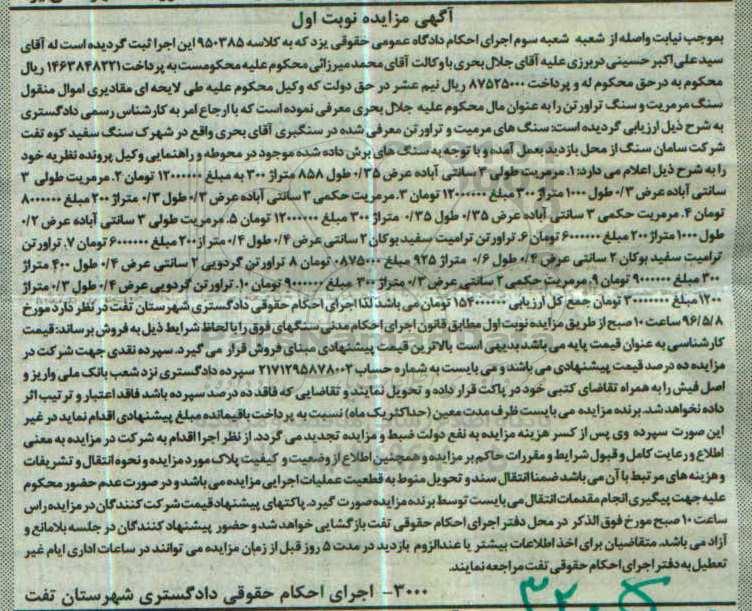 آگهی مزایده نوبت اول
بموجب نیابت واصله از شعبه شعبه سوم اجرای احکام دادگاه عمومی حقوقی یزد که به کلاسه ۹۵۰۳۸۵ این اجرا ثبت گردیده است له آقای
سید علی اکبر حسینی دربرزی علیه آقای جلال بحری با وکالت آقای محمد میرزائی محکوم علیه محکومست به پرداخت ۱۴۶۳۸۴۸۳۲۱ ریال
محکوم به در حق محکوم له و پرداخت ۸۷۵۲۵۰۰۰ ریال نیم عشر در حق دولت که وکیل محکوم علیه طی لایحه ای مقادیری اموال منقول
سنگ مرمریت و سنگ تراورتن را به عنوان مال محکوم علیه جلال بحری معرفی نموده است که با ارجاع امر به کارشناس رسمی دادگستری
به شرح ذیل ارزیابی گردیده است: سنگ های مرمیت و تراورتن معرفی شده در سنگبری آقای بحری واقع در شهرک سنگ سفید کوه تفت
شرکت سامان سنگ از محل بازدید بعمل آمده و با توجه به سنگ های برش داده شده موجود در محوطه و راهنمایی وکیل پرونده نظریه خود
را به شرح ذیل اعلام می دارد: ۱. مرمریت طولی ۳ سانتی آباده عرض ۰/۳۵ طول ۸۵۸ متراژ ۳۰۰ به مبلغ ۱۲۰۰۰۰۰۰ تومان ۲. مرمریت طولی ۳
سانتی آباده عرض ۰/۳ طول ۱۰۰۰ متراژ ۳۰۰ مبلغ ۱۲۰۰۰۰۰۰ تومان ۳. مرمریت حکمی ۳ سانتی آباده عرض ۰/۳ طول ۰/۳ متراژ ۲۰۰ مبلغ ۸۰۰۰۰۰۰
تومان ۴. مرمریت حکمی ۳ سانتی آباده عرض ۰/۳۵ طول ۰/۳۵ متراژ ۳۰۰ مبلغ ۱۲۰۰۰۰۰۰ تومان ۵. مرمریت طولی ۳ سانتی آباده عرض ۰/۲
طول ۱۰۰۰ متراژ ۲۰۰ مبلغ ۶۰۰۰۰۰۰ تومان ۶. تراورتن ترامیت سفید بوکان ۲ سانتی عرض ۰/۴ طول ۰/۴ متراژ ۲۰۰ مبلغ ۶۰۰۰۰۰۰ تومان ۷. تراورتن
ترامیت سفید بوکان ۲ سانتی عرض ۰/۴ طول ۰/۶ متراژ ۹۲۵ مبلغ ۰۸۷۵۰۰۰ تومان ۸ تراورتن گردویی ۲ سانتی عرض ۰/۴ طول ۴۰۰ متراژ
۳۰۰ مبلغ ۹۰۰۰۰۰۰ تومان ۹. مرمریت حکمی ۲ سانتی عرض ۰/۳ متراژ ۳۰۰ مبلغ ۹۰۰۰۰۰۰ تومان ۱۰. تراورتن گردویی عرض ۰/۴ طول ۰/۳ متراژ
۱۲۰۰ مبلغ ۳۰۰۰۰۰۰۰ تومان جمع کل ارزیابی ۱۵۴۰۰۰۰۰۰ تومان می باشد لذا اجرای احکام حقوقی دادگستری شهرستان تفت در نظر دارد مورخ
۹۶/۵/۸ ساعت ۱۰ صبح از طریق مزایده نوبت اول مطابق قانون اجرای احکام مدنی سنگهای فوق را با لحاظ شرایط ذیل به فروش برساند: قیمت
کارشناسی به عنوان قیمت پایه می باشد بدیهی است بالاترین قیمت پیشنهادی مبنای فروش قرار می گیرد. سپرده نقدی جهت شرکت در
مزایده ده درصد قیمت پیشنهادی می باشد و می بایست به شماره حساب ۲۱۷۱۲۹۵۸۷۸۰۰۲ سپرده دادگستری نزد شعب بانک ملی واریز و
اصل فیش را به همراه تقاضای کتبی خود در پاکت قرار داده و تحویل نمایند و تقاضایی که فاقد ده درصد سپرده باشد فاقد اعتبار و ترتیب اثر
داده نخواهد شد. برنده مزایده می بایست ظرف مدت معین (حداکثر یک ماه) نسبت به پرداخت باقیمانده مبلغ پیشنهادی اقدام نماید در غیر
این صورت سپرده وی پس از کسر هزینه مزایده به نفع دولت ضبط و مزایده تجدید می گردد. از نظر اجرا اقدام به شرکت در مزایده به معنی
اطلاع و رعایت کامل و قبول شرایط و مقررات حاکم بر مزایده و همچنین اطلاع از وضعیت و کیفیت پلاک مورد مزایده و نحوه انتقال و تشریفات
و هزینه های مرتبط با آن می باشد ضمنا انتقال سند و تحویل منوط به قطعیت عملیات اجرایی مزایده می باشد و در صورت عدم حضور محکوم
علیه جهت پیگیری انجام مقدمات انتقال می بایست توسط برنده مزایده صورت گیرد. پاکتهای پیشنهاد قیمت شرکت کنندگان در مزایده راس
ساعت ۱۰ صبح مورخ فوق الذکر در محل دفتر اجرای احکام حقوقی تفت بازگشایی خواهد شد و حضور پیشنهاد کنندگان در جلسه بلامانع و
آزاد می باشد. متقاضیان برای اخذ اطلاعات بیشتر یا عندالزوم بازدید در مدت ۵ روز قبل از زمان مزایده می توانند در ساعات اداری ایام غیر
تعطیل به دفتر اجرای احکام حقوقی تفت مراجعه نمایند.
۳۰۰۰- اجرای احکام حقوقی دادگستری شهرستان تفت